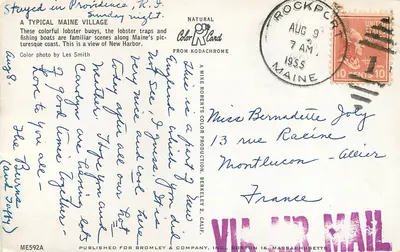 Stayed in Providence, R.I.
Sunday night.
A TYPICAL MAINE VILLAGE
These colorful lobster buoys, the lobster traps and
fishing boats are familiar scenes along Maine's pic-
turesque coast. This is a view of New Harbor.
Color photo by Les Smith
Aug 8.
This is a part of New
England which you did
not see, I guess. It is
very nice and cool here
today after all our hot
weather. Hope you and
Carolyn are having lots
of good times together-
Love to you all-
The Burns
(and Taffy)
NATURAL
Color Card
FROM KODACHROME
MIKE ROBERTS COLOR PRODUCTION, BERKELEY 2, CALIF.
ROCKPORT
AUG 9
7 AM
1955
MAINE
10
10
Miss Bernadette Joly
13 rue Racine
Montlucon - Allier
France
VIA AIR MAIL
ME592A
PUBLISHED FOR BROMLEY & COMPANY, INC., BOSTON 16, MASSACHUSETTS